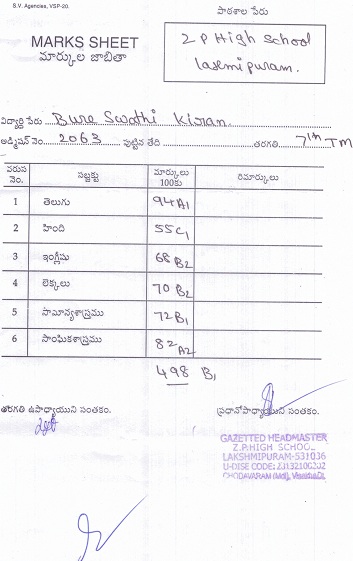 S.V. Agencies, VSP-20.
పాఠశాల పేరు
MARKS SHEET
మార్కుల జాబితా
Z P High School
Laxmipuram.
విద్యార్థి పేరు Bure Swathi Kiran.
అడ్మిషన్ నెం. 2063 పుట్టిన తేది తరగతి 7th TM
వరుస నెం. సబ్జక్టు మార్కులు 100కు రిమార్కులు
1 తెలుగు 94 A1
2 హింది 55 C1
3 ఇంగ్లీషు 68 B2
4 లెక్కలు 70 B2
5 సామాన్యశాస్త్రము 72 B1
6 సాంఘికశాస్త్రము 82 A2
498 B1
తరగతి ఉపాధ్యాయుని సంతకం. ప్రధానోపాధ్యాయుని సంతకం.
GAZETTED HEADMASTER
Z.P.HIGH SCHOOL
LAKSHMIPURAM-531036
U-DISE CODE:
CHODAVARAM (Mdl), Visakha Dt.